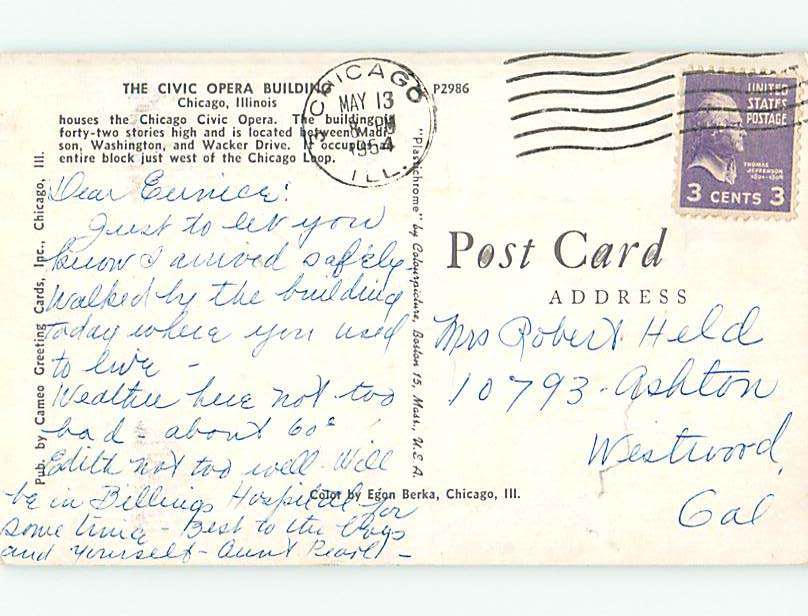 THE CIVIC OPERA BUILDING
Chicago, Illinois
houses the Chicago Civic Opera. The building is
forty-two stories high and is located between Madi-
son, Washington, and Wacker Drive. It occupies an
entire block just west of the Chicago Loop.
P2986
CHICAGO
MAY 13
1954
ILL.
UNITED
STATES
POSTAGE
THOMAS
JEFFERSON
1801-1809
3 CENTS 3
Pub. by Cameo Greeting Cards, Inc., Chicago, Ill.
"Plastichrome" by Colourpicture, Boston 15, Mass., U.S.A.
Dear Eunice:
Just to let you
know I arrived safely
Walked by the building
today where you used
to live -
Weather here not too
bad - about 60°
Edith not too well - Will
be in Billings Hospital for
some time - Best to the boys
and yourself - Aunt Pearl -
Color by Egon Berka, Chicago, Ill.
Post Card
ADDRESS
Mrs Robert Held
10793 - Ashton
Westwood,
Cal